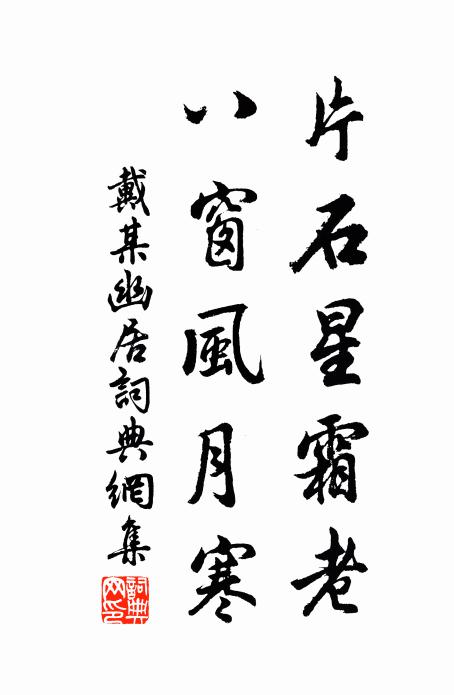 片石星霜老
八窗風月寒
戴某幽居詞典網集
詞典網印